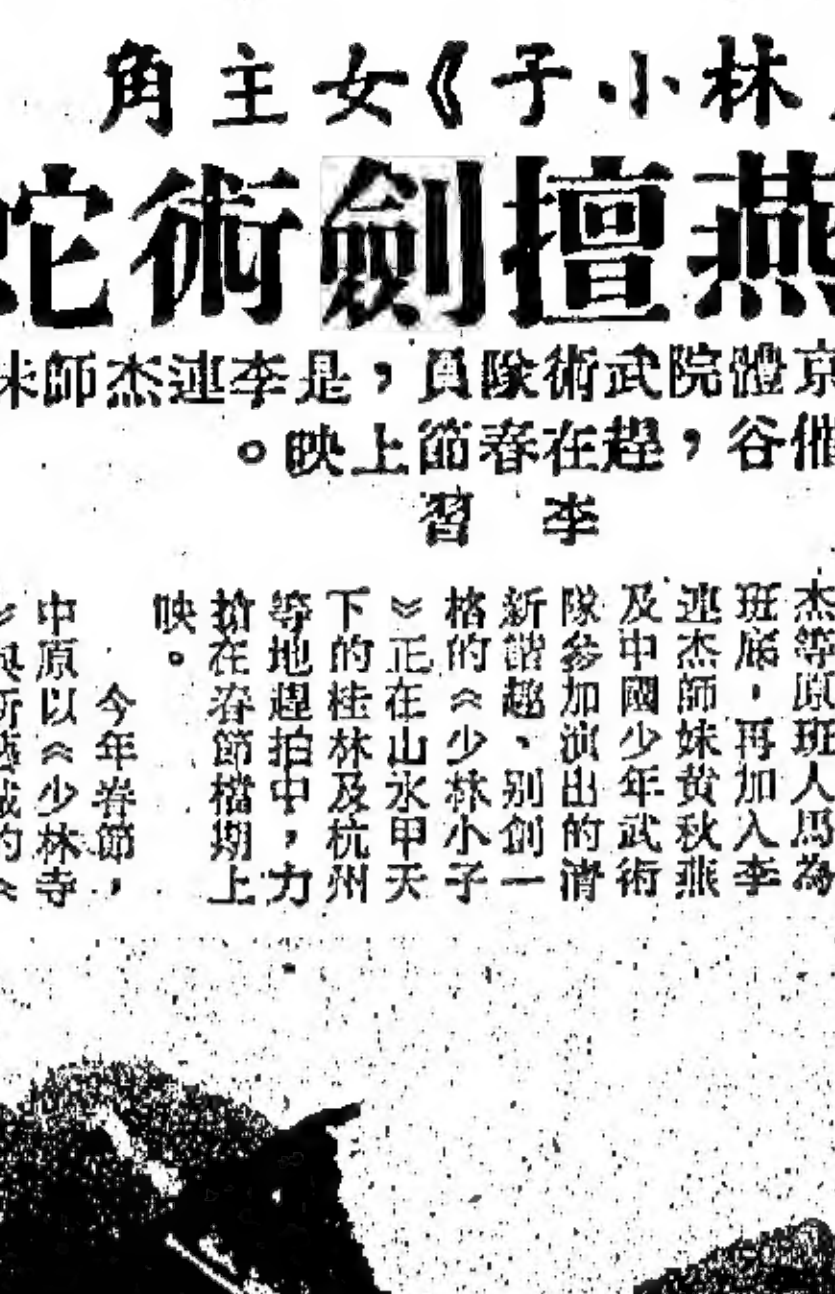 林小子》女主角
燕擅劍術蛇
京體院武術隊員，是李連杰師妹
催谷，趕在春節上映。
李習
杰等原班人馬為
班底，再加入李
連杰師妹黃秋燕
及中國少年武術
隊參加演出的清
新諧趣、別創一
格的《少林小子
》正在山水甲天
下的桂林及杭州
等地趕拍中，力
搶在春節檔期上
映。
今年春節，
中原以《少林寺
》與新藝城的《